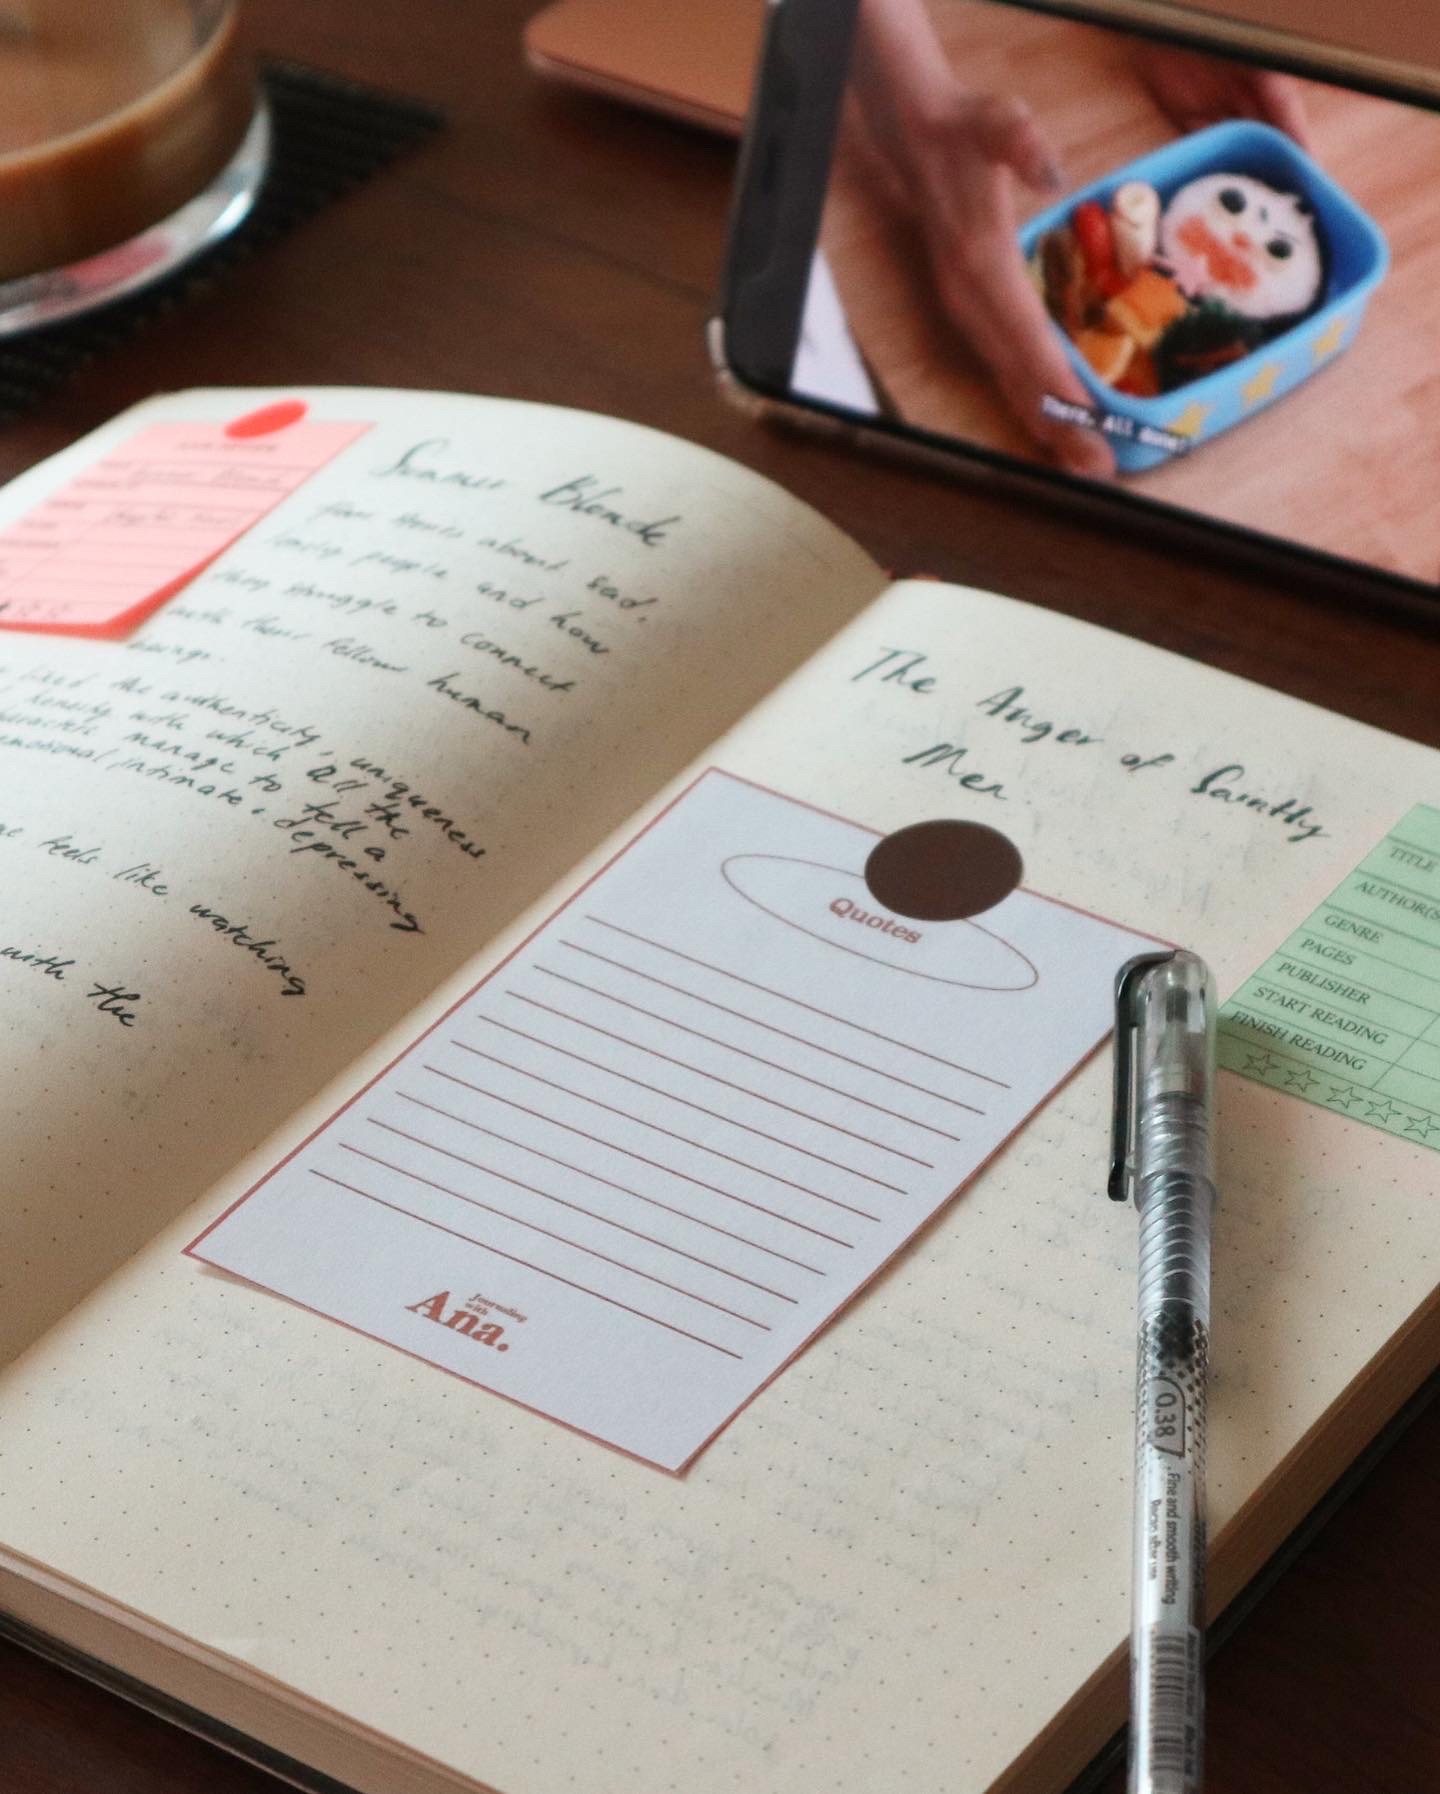 There. All done!
Summer Blonde
four stories about sad,
lonely people and how
they struggle to connect
with their fellow human
beings.
liked the authenticity, uniqueness
honesty with which all the
manage to tell a
emotional, intimate, depressing
feels like watching
with the
The Anger of Saintly
Men.
Quotes
Journaling
with
Ana.
TITLE
AUTHOR(S
GENRE
PAGES
PUBLISHER
START READING
FINISH READING
0.38
Fine and smooth writing